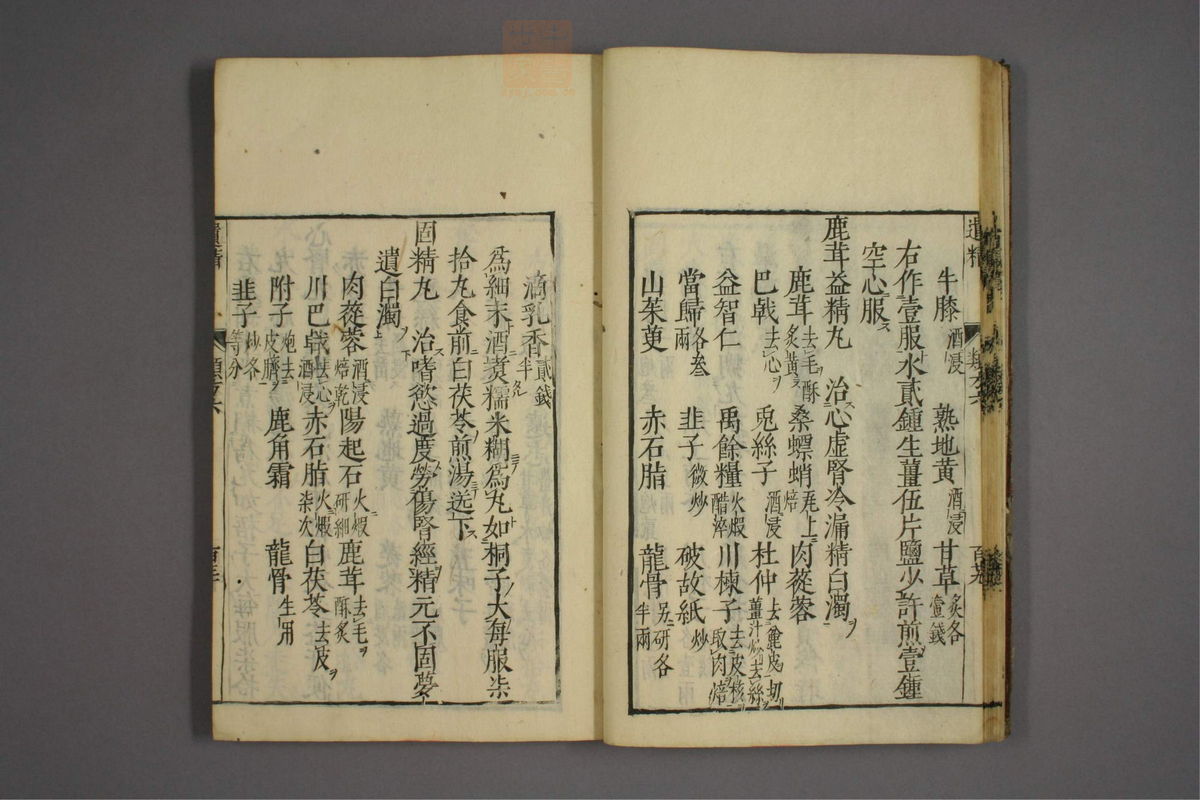 遺精
類六
牛膝酒浸 熟地黃酒浸 甘草炙各壹錢
右作壹服水貳鍾生薑伍片鹽少許煎壹鍾
空心服
鹿茸益精丸 治心虛腎冷漏精白濁
鹿茸去毛酥炙黃 桑螵蛸 焙 肉蓯蓉
巴戟去心 兎絲子酒浸 杜仲去麄皮切薑汁炒去絲
益智仁 禹餘糧火煆醋淬 川楝子去皮核取肉焙
當歸各叁兩 韭子微炒 破故紙炒
山茱萸 赤石脂 龍骨另研各半兩
滴乳香貳錢半
爲細末酒煑糯米糊爲丸如桐子大每服柒
拾丸食前白茯苓煎湯送下
固精丸 治嗜慾過度勞傷腎經精元不固夢
遺白濁
肉蓯蓉酒浸焙乾 陽起石火煆研細 鹿茸去毛酥炙
川巴戟去心酒浸 赤石脂火煆柒次 白茯苓去皮
附子炮去皮臍 鹿角霜 龍骨生用
韭子炒各等分
遺精